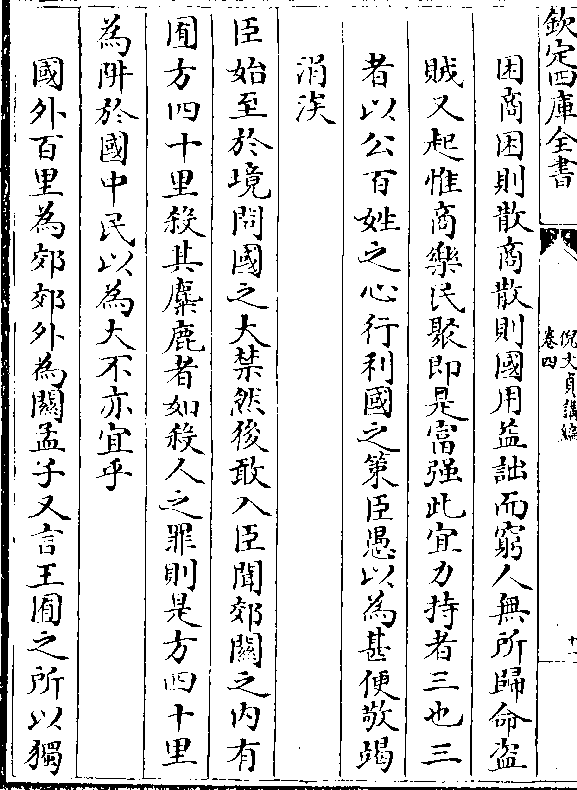 欽定四庫全書
倪文貞講編
卷四
十一
困商困則散商散則國用益詘而窮人無所歸命盜
賊又起惟商樂民聚即是富强此宜力持者三也三
者以公百姓之心行利國之策臣愚以為甚便敬竭
涓涘
臣始至於境問國之大禁然後敢入臣聞郊關之内有
囿方四十里殺其麋鹿者如殺人之罪則是方四十里
為阱於國中民以為大不亦宜乎
國外百里為郊郊外為關孟子又言王囿之所以獨